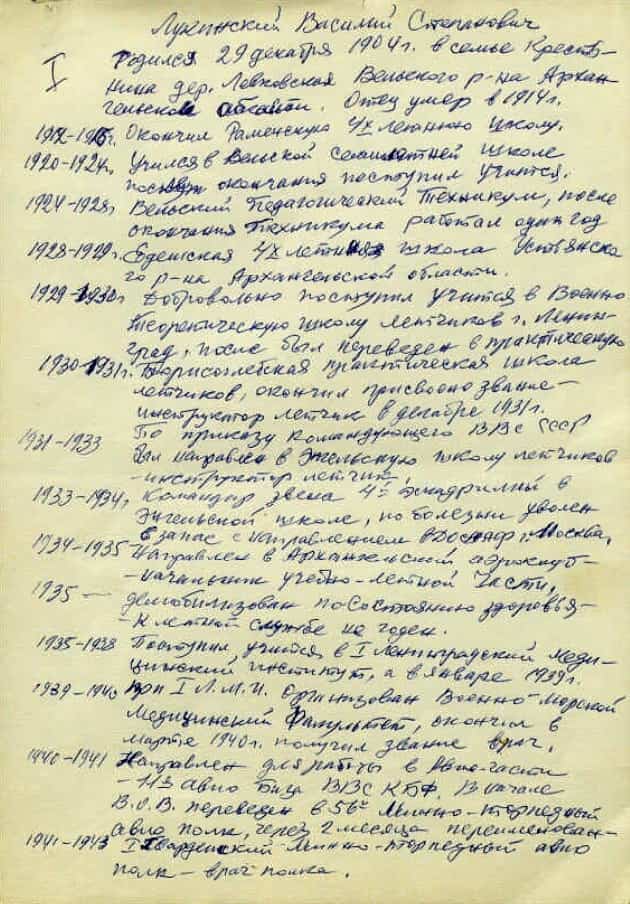 Лукинский Василий Степанович
I Родился 29 декабря 1904 г. в семье Крестья-
нина дер. Левковская Вельского р-на Архан-
гельской области. Отец умер в 1914 г.
Окончил Раменскую 4х летнюю школу.
1920-1924г. Учился в Вельской семилетней школе
после окончания поступил учится.
1924-1928г. Вельский Педагогический Техникум, после
окончания Техникума работал один год
1928-1929г. Едемская 4х летняя школа Устьянско
го р-на Архангельской области.
1929-1930г Добровольно поступил учится в Военно
Теоретическую школу летчиков г. Ленин-
град, после был переведен в практическую
1930-1931г. Борисоглебская практическая школа
летчиков, окончил присвоено звание-
инструктор летчик в декабре 1931 г.
1931-1933 По приказу командующего ВВС СССР
был направлен в Энгельскую школу летчиков
-инструктор летчик.
1933-1934г. Командир звена 4й Эскадрильи в
Энгельской школе, по болезни уволен
в запас с направлением в Досааф г. Москва,
1934-1935 Направлен в Архангельский аэроклуб-
-начальник учебно-летной части,
1935 — демобилизован по состоянию здоровья-
-к летной службе не годен.
1935-1938 Поступил учится в I Ленинградский Меди-
цинский институт, а в январе 1939 г.
1939-1940 при I Л.М.И. организован Военно-Морской
Медицинский Факультет, окончил в
марте 1940 г. получил звание врач.
1940-1941 Направлен для работы в Авиа-части
авио База ВВС КБФ. В начале
В.О.В. переведен в 56й Минно-торпедный
авио полк, через 2 месяца переименован-
1941-1943 I Гвардейский Минно-торпедный авио
полк - врач полка.